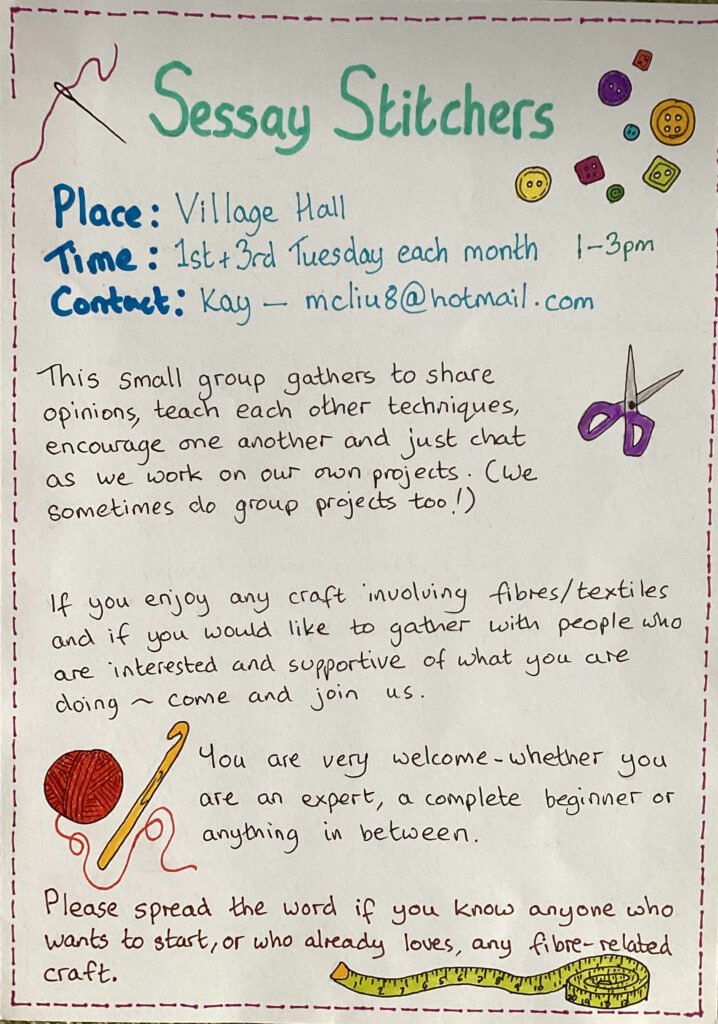 Sessay Stitchers
Place: Village Hall
Time: 1st + 3rd Tuesday each month 1-3pm
Contact: Kay – mcliu8@hotmail.com
This small group gathers to share
opinions, teach each other techniques,
encourage one another and just chat
as we work on our own projects. (We
sometimes do group projects too!)
If you enjoy any craft involving fibres/textiles
and if you would like to gather with people who
are interested and supportive of what you are
doing ~ come and join us.
You are very welcome - whether you
are an expert, a complete beginner or
anything in between.
Please spread the word if you know anyone who
wants to start, or who already loves, any fibre-related
craft.